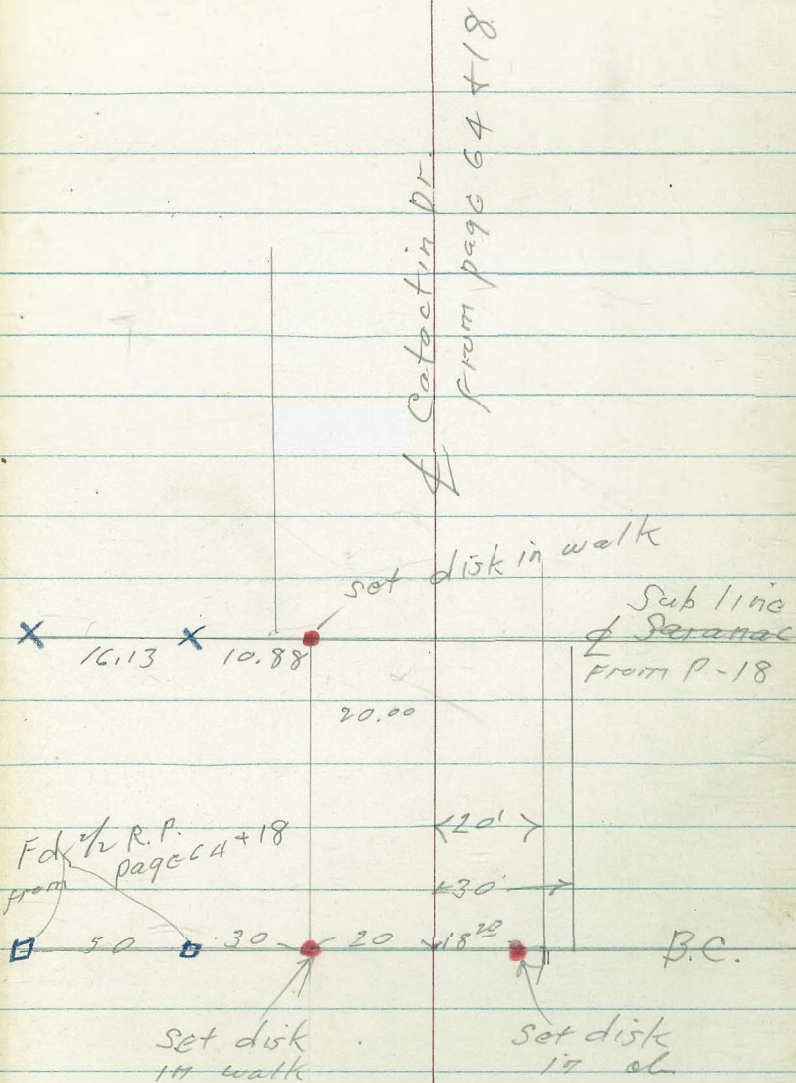 ℄ Catoctin Dr.
From page 64 + 18
set disk in walk
Sub line
℄ Saranac
From P-18
16.13 10.88
20.00
20'
30'
Fd 2/2 R.P.
from page 64 + 18
50 30 20 18 20 B.C.
Set disk
in walk
Set disk
in